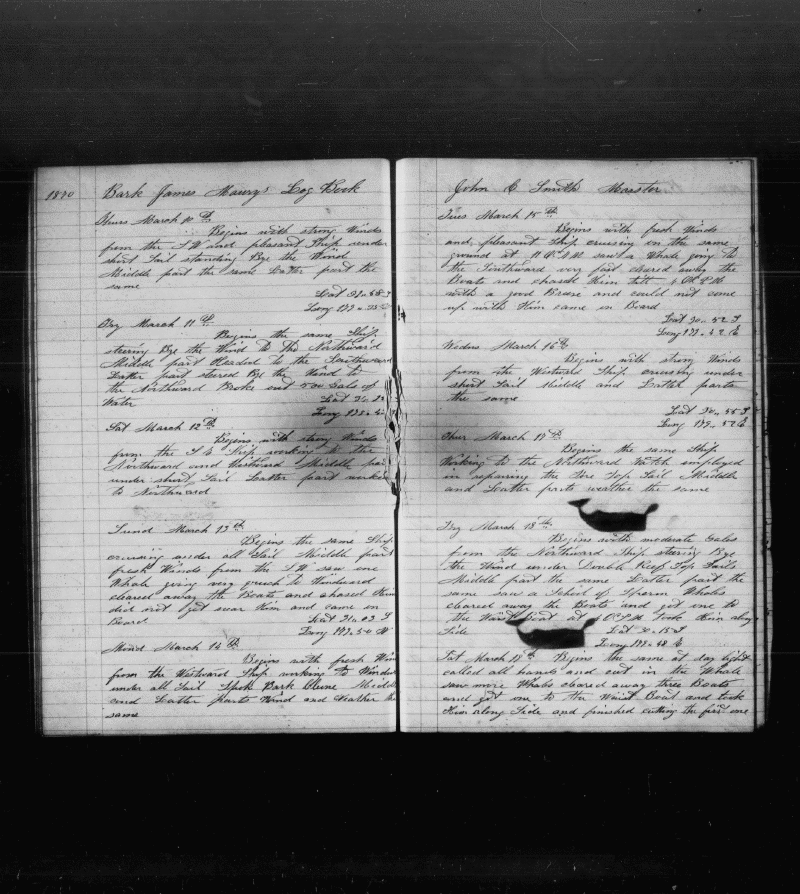 1870
Bark James Maury's Log Book
Thurs March 10th
Begins with strong Winds
from the S W and pleasant Ship under
short Sail standing Bye the Wind
Middle part the same Latter part the
same
Latt 30..58 S
Long 179..35
Fry March 11th
Begins the same Ship
steering Bye the Wind to the Northward
Middle part Headed to the Southward
Latter part steered Bye the Wind to
the Northward Broke out 500 Gals of
Water
Latt 30..
Long
Sat March 12th
Begins with strong Winds
from the S E Ship working to the
Northward and Westward Middle par
under short Sail Latter part worked
to Northward
Sund March 13th
Begins the same Ship
cruising under all Sail Middle part
fresh Winds from the S W saw one
Whale going very quick to Windward
cleared away the Boats and chased Him
did not get near Him and came on
Board
Latt 30..03 S
Long 179..50 W
Mond March 14th
Begins with fresh Win
from the Westward Ship working to Windw
under all Sail Spok Bark Middl
and Latter parts Wind and Weather the
same
John C Smith Master
Tues March 15th
Begins with fresh Winds
and pleasant Ship cruising on the same
ground at 11 OC A M saw a Whale going to
the Southward very fast cleared away the
Boats and chased Him till 4 OC P M
with a good Breese and could not come
up with Him came on Board
Latt 30..52 S
Long 179..42 E
Wedns March 16th
Begins with strong Winds
from the Westward Ship cruising under
short Sail Middle and Latter parts
the same
Latt 30..55 S
Long 179..52 E
Thur March 17th
Begins the same Ship
Working to the Northward Watch employed
in repairing the Fore Top Sail Middle
and Latter parts weather the same
Fry March 18th
Begins with moderate Gales
from the Northward Ship steering Bye
the Wind under Double Reef Top Sails
Middle part the same Latter part the
same saw a School of Sperm Whales
cleared away the Boats and got one to
the Waist Boat at OC P M Took Him along
Side
Latt 30..15 S
Long 179..48 E
Sat March 19th Begins the same at day light
called all hands and cut in the Whale
saw more Whales cleared away three Boats
and got one to the Waist Boat and took
Him along Side and finished cutting the first one